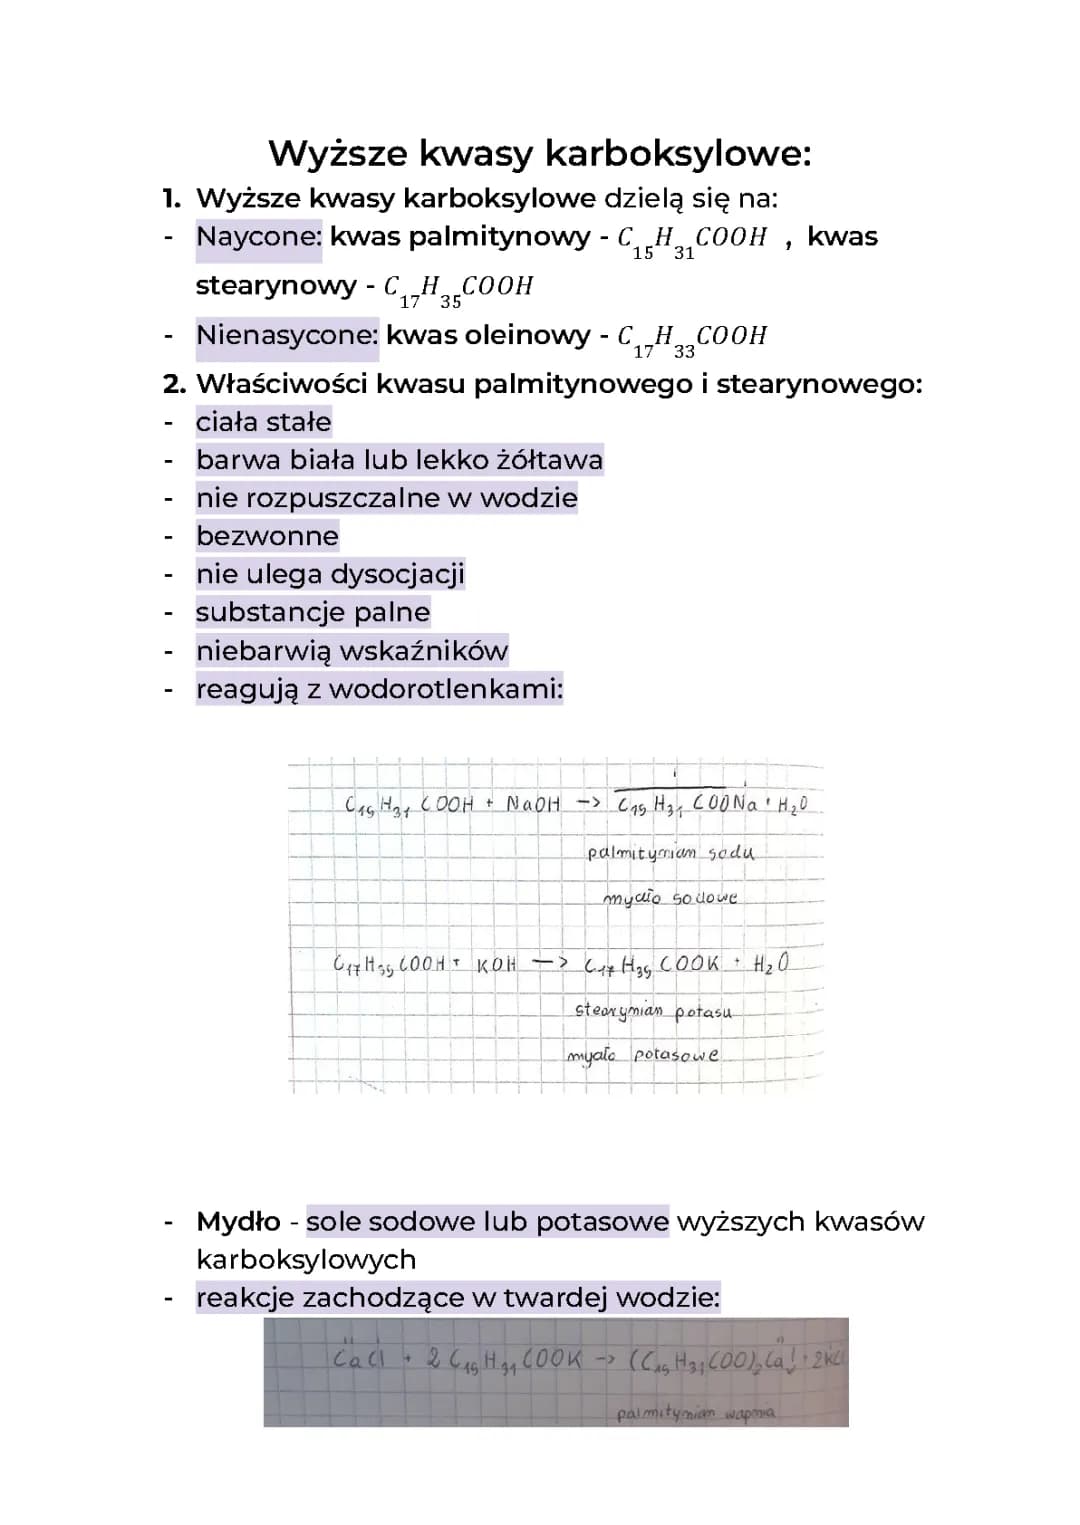 Wyższe kwasy karboksylowe:
1. Wyższe kwasy karboksylowe dzielą się na:
- Naycone: kwas palmitynowy - C₁₅H₃₁COOH , kwas
stearynowy - C₁₇H₃₅COOH
- Nienasycone: kwas oleinowy - C₁₇H₃₃COOH
2. Właściwości kwasu palmitynowego i stearynowego:
- ciała stałe
- barwa biała lub lekko żółtawa
- nie rozpuszczalne w wodzie
- bezwonne
- nie ulega dysocjacji
- substancje palne
- niebarwią wskaźników
- reagują z wodorotlenkami:
C₁₅H₃₁COOH + NaOH -> C₁₅H₃₁COONa + H₂O
palmitynian sodu
mydło sodowe
C₁₇H₃₅COOH + KOH -> C₁₇H₃₅COOK + H₂O
stearynian potasu
mydło potasowe
- Mydło - sole sodowe lub potasowe wyższych kwasów
karboksylowych
- reakcje zachodzące w twardej wodzie:
CaCl + 2 C₁₅H₃₁COOK -> (C₁₅H₃₁COO)₂Ca↓ + 2KCl
palmitynian wapnia